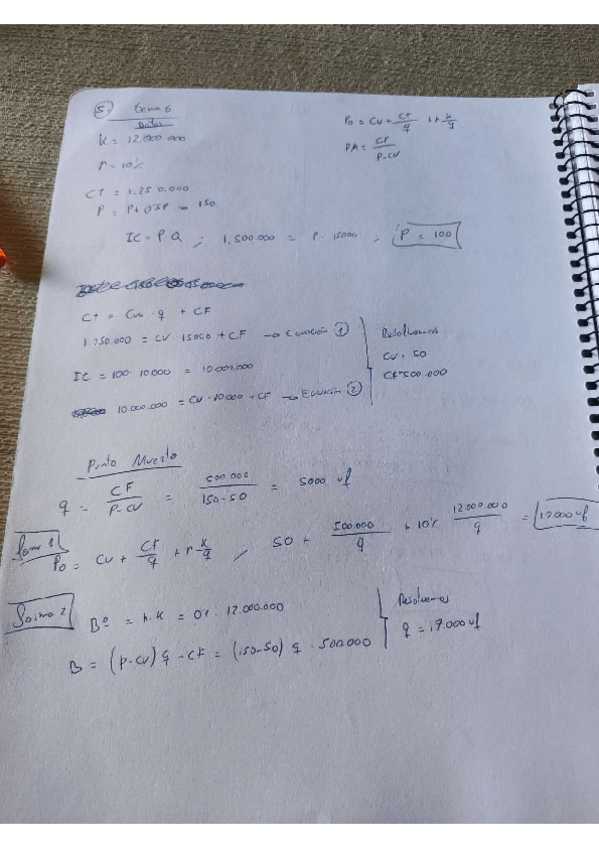 5. tema 6
Datos
K = 12.000.000
P₀ = CV + CF/q + r k/q
PM = CF/P-CV
r = 10%
CT = 1.250.000
P = P + 0'5P = 150
IC = P·Q ; 1.500.000 = P · 15000 ; P = 100
CT = CVu · q + CF
1.250.000 = CV · 15000 + CF → Ecuación ①
IC = 100 · 10.000 = 10.000.000
10.000.000 = CV · 10.000 + CF → Ecuación ②
Resolvemos
CV = 50
CF = 500.000
Punto Muerto
q = CF/P-CV = 500.000/150-50 = 5000 uf
Forma 1
P₀ = CV + CF/q + r k/q ; 50 + 500.000/q + 10% 12.000.000/q = 17.000 uf
Forma 2
Bº = r·K = 0'1 · 12.000.000
B = (P-CV) q - CF = (150-50) q - 500.000
Resolvemos
q = 17.000 uf